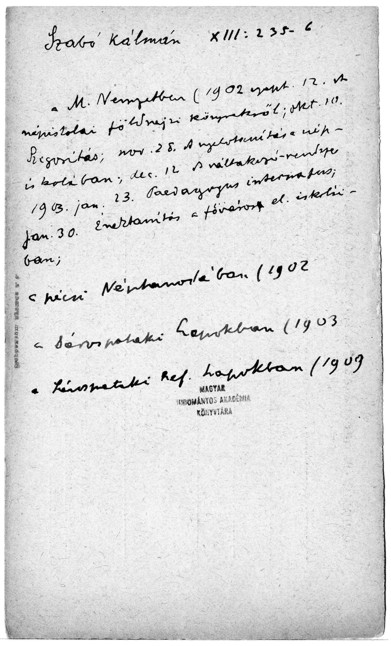 Szabó Kálmán XIII: 235-6
a M. Nemzetben (1902 szept. 12. A
népiskolai földrajzi könyvekről; okt. 10.
Szigorítás; nov. 28. A nyelvtanítás a nép-
iskolában; dec. 12 A váltakozó-rendsze
1903. jan. 23. Paedagogus internatus;
jan. 30. Énektanítás a főváros el. iskolái-
ban;
a pécsi Néptanodában (1902
a Sárospataki Lapokban (1903
a Sárospataki Ref. Lapokban (1909
MAGYAR
TUDOMÁNYOS AKADÉMIA
KÖNYVTÁRA